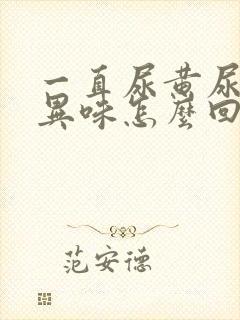 一直尿黄尿
異味怎麼回
范安德